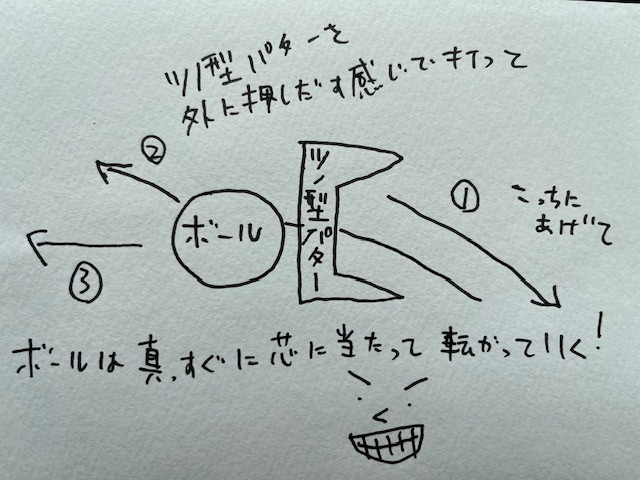 ツノ型パターを
外に押しだす感じで打って
②
ボール
ツノ型パター
①
こっちに
あげて
③
ボールは真っすぐに芯に当たって転がっていく!